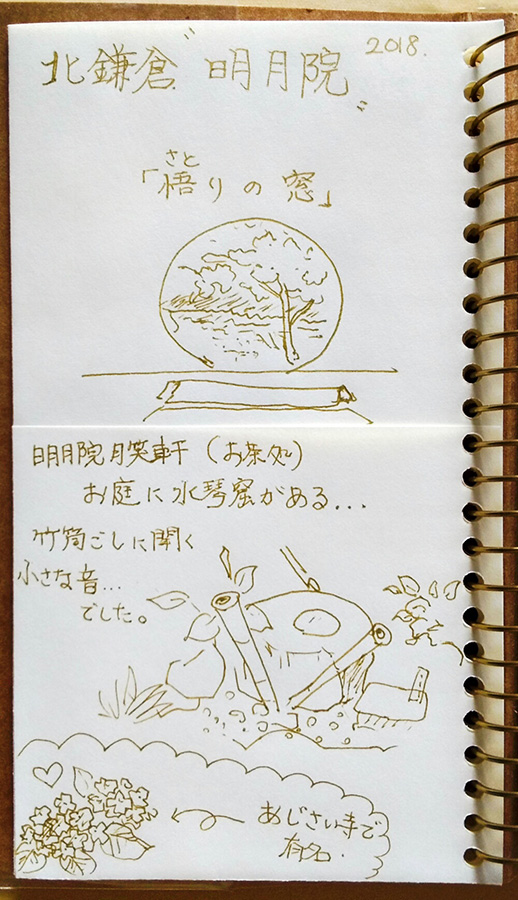 2018.
"北鎌倉 明月院"
さと
「悟りの窓」
明月院月笑軒(お茶処)
お庭に水琴窟がある...
竹筒ごしに聞く
小さな音...
でした。
あじさい寺で
有名.